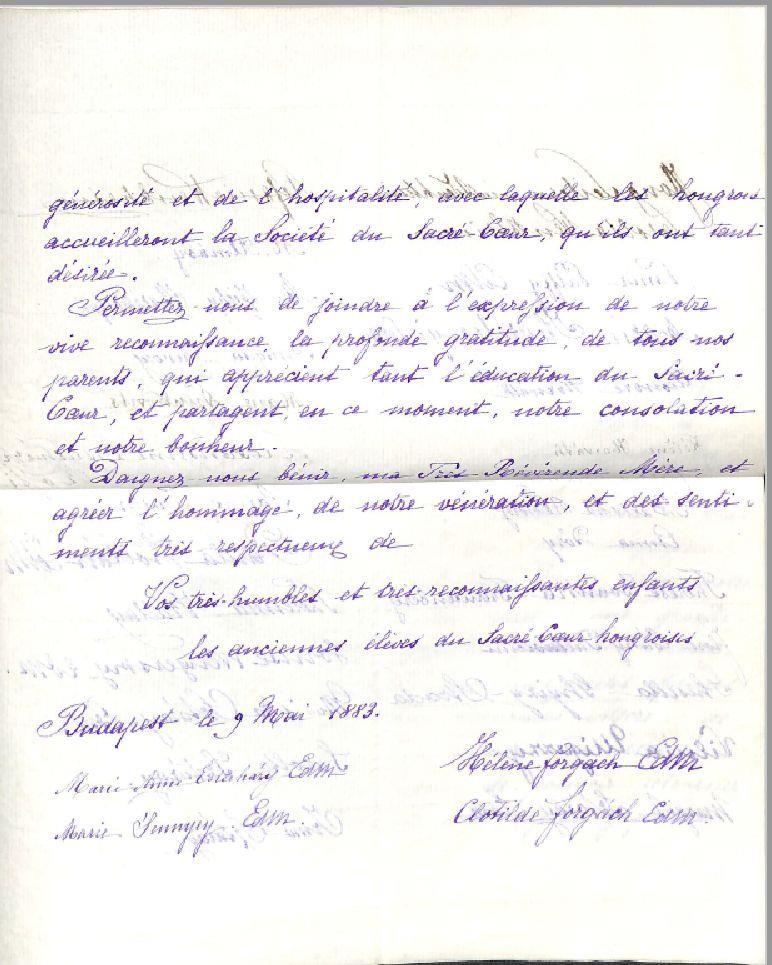 générosité et de l'hospitalité, avec laquelle les hongrois
accueilleront la Société du Sacré-Cœur, qu'ils ont tant
désirée.
Permettez nous de joindre à l'expression de notre
vive reconnaissance la profonde gratitude, de tous nos
parents, qui apprécient tant l'éducation du Sacré-
Cœur, et partagent, en ce moment, notre consolation
et notre bonheur.
Daignez nous bénir, ma Très Révérende Mère, et
agréer l'hommage, de notre vénération, et des senti-
ments très respectueux de
Vos très-humbles et très-reconnaissantes enfants
les anciennes élèves du Sacré Cœur hongroises
Budapest le 9 Mai 1883.
Hélène Forgach EdM
Marie Anne EdM
Clotilde Forgach EdM.
Marie Sennyey EdM.